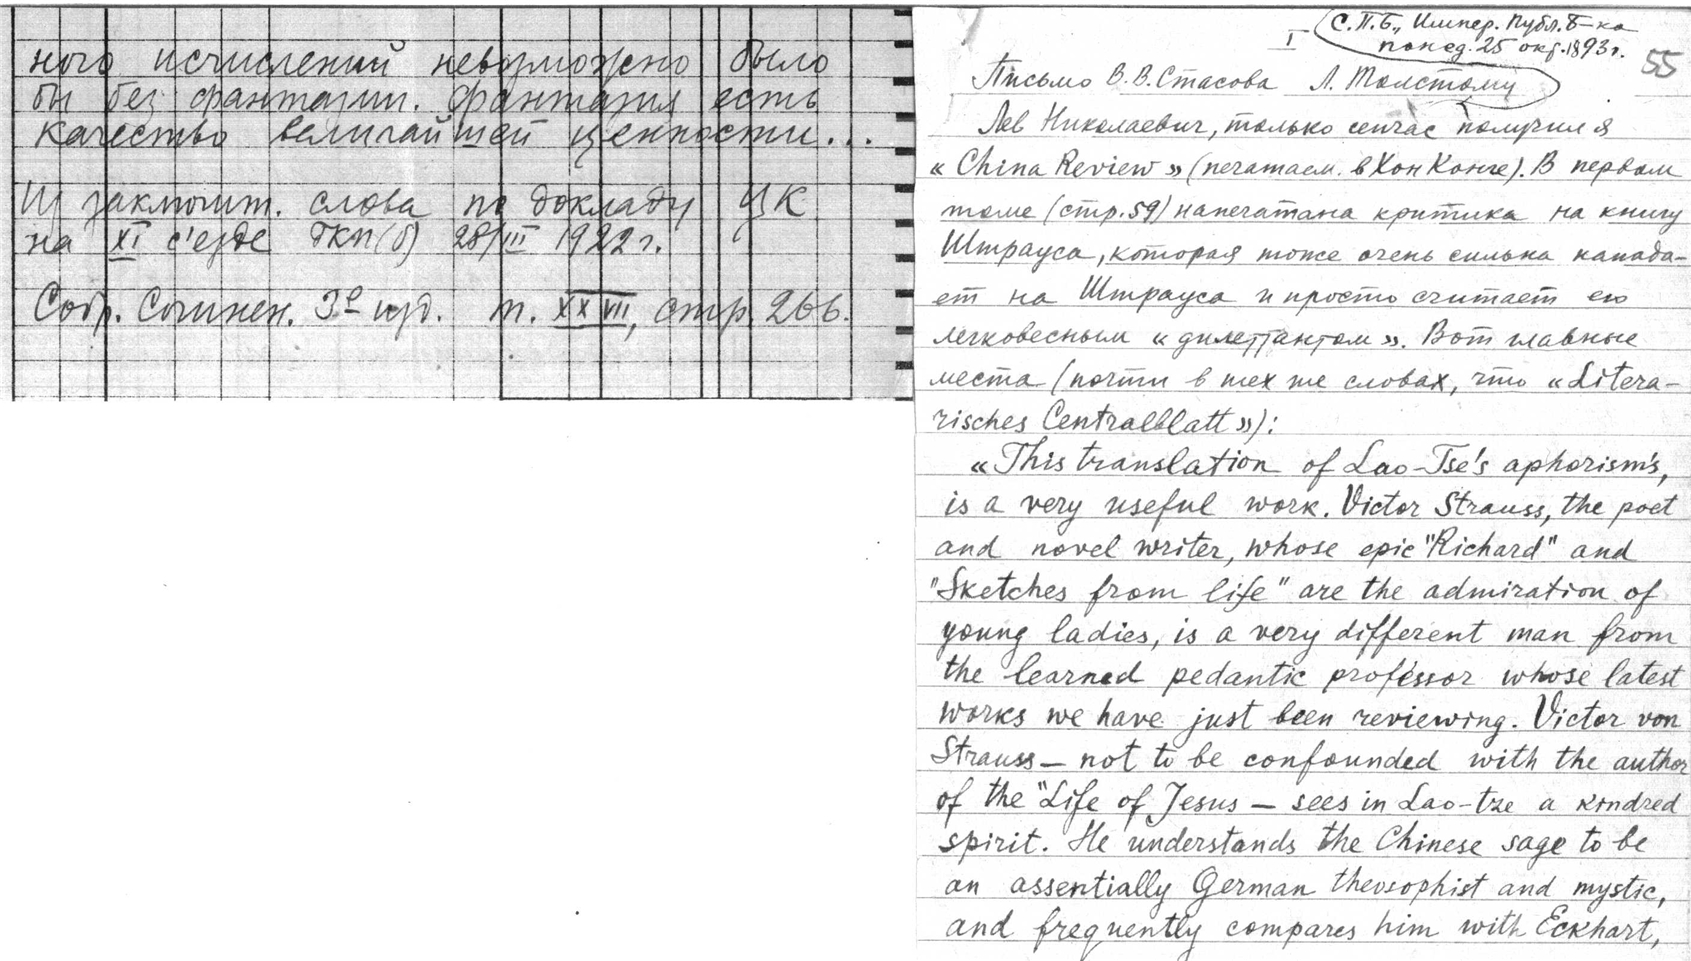 ного исчислений невозможно было
бы без фантазии. Фантазия есть
качество величайшей ценности...
Из заключит. слова по докладу ЦК
на XI с'езде РКП(б) 28/III 1922 г.
Собр. Сочинен. 3е изд. т. XXVII, стр. 266.
С.П.Б., Импер. Публ. б-ка
I понед. 25 окт. 1893 г.
55
Письмо В.В. Стасова Л. Толстому
Лев Николаевич, только сейчас получил я
« China Review » (печатаем. в Хон Конге). В первом
томе (стр. 59) напечатана критика на книгу
Штрауса, которая тоже очень сильна напада-
ет на Штрауса и просто считает его
легковесным « дилеттантом ». Вот главные
места (почти в тех же словах, что « Litera-
risches Centralblatt »):
« This translation of Lao-Tse's aphorism's,
is a very useful work. Victor Strauss, the poet
and novel writer, whose epic "Richard" and
"Sketches from life" are the admiration of
young ladies, is a very different man from
the learned pedantic professor whose latest
works we have just been reviewing. Victor von
Strauss — not to be confounded with the author
of the "Life of Jesus — sees in Lao-tze a kindred
spirit. He understands the Chinese sage to be
an assentially German theosophist and mystic,
and frequently compares him with Eckhart,